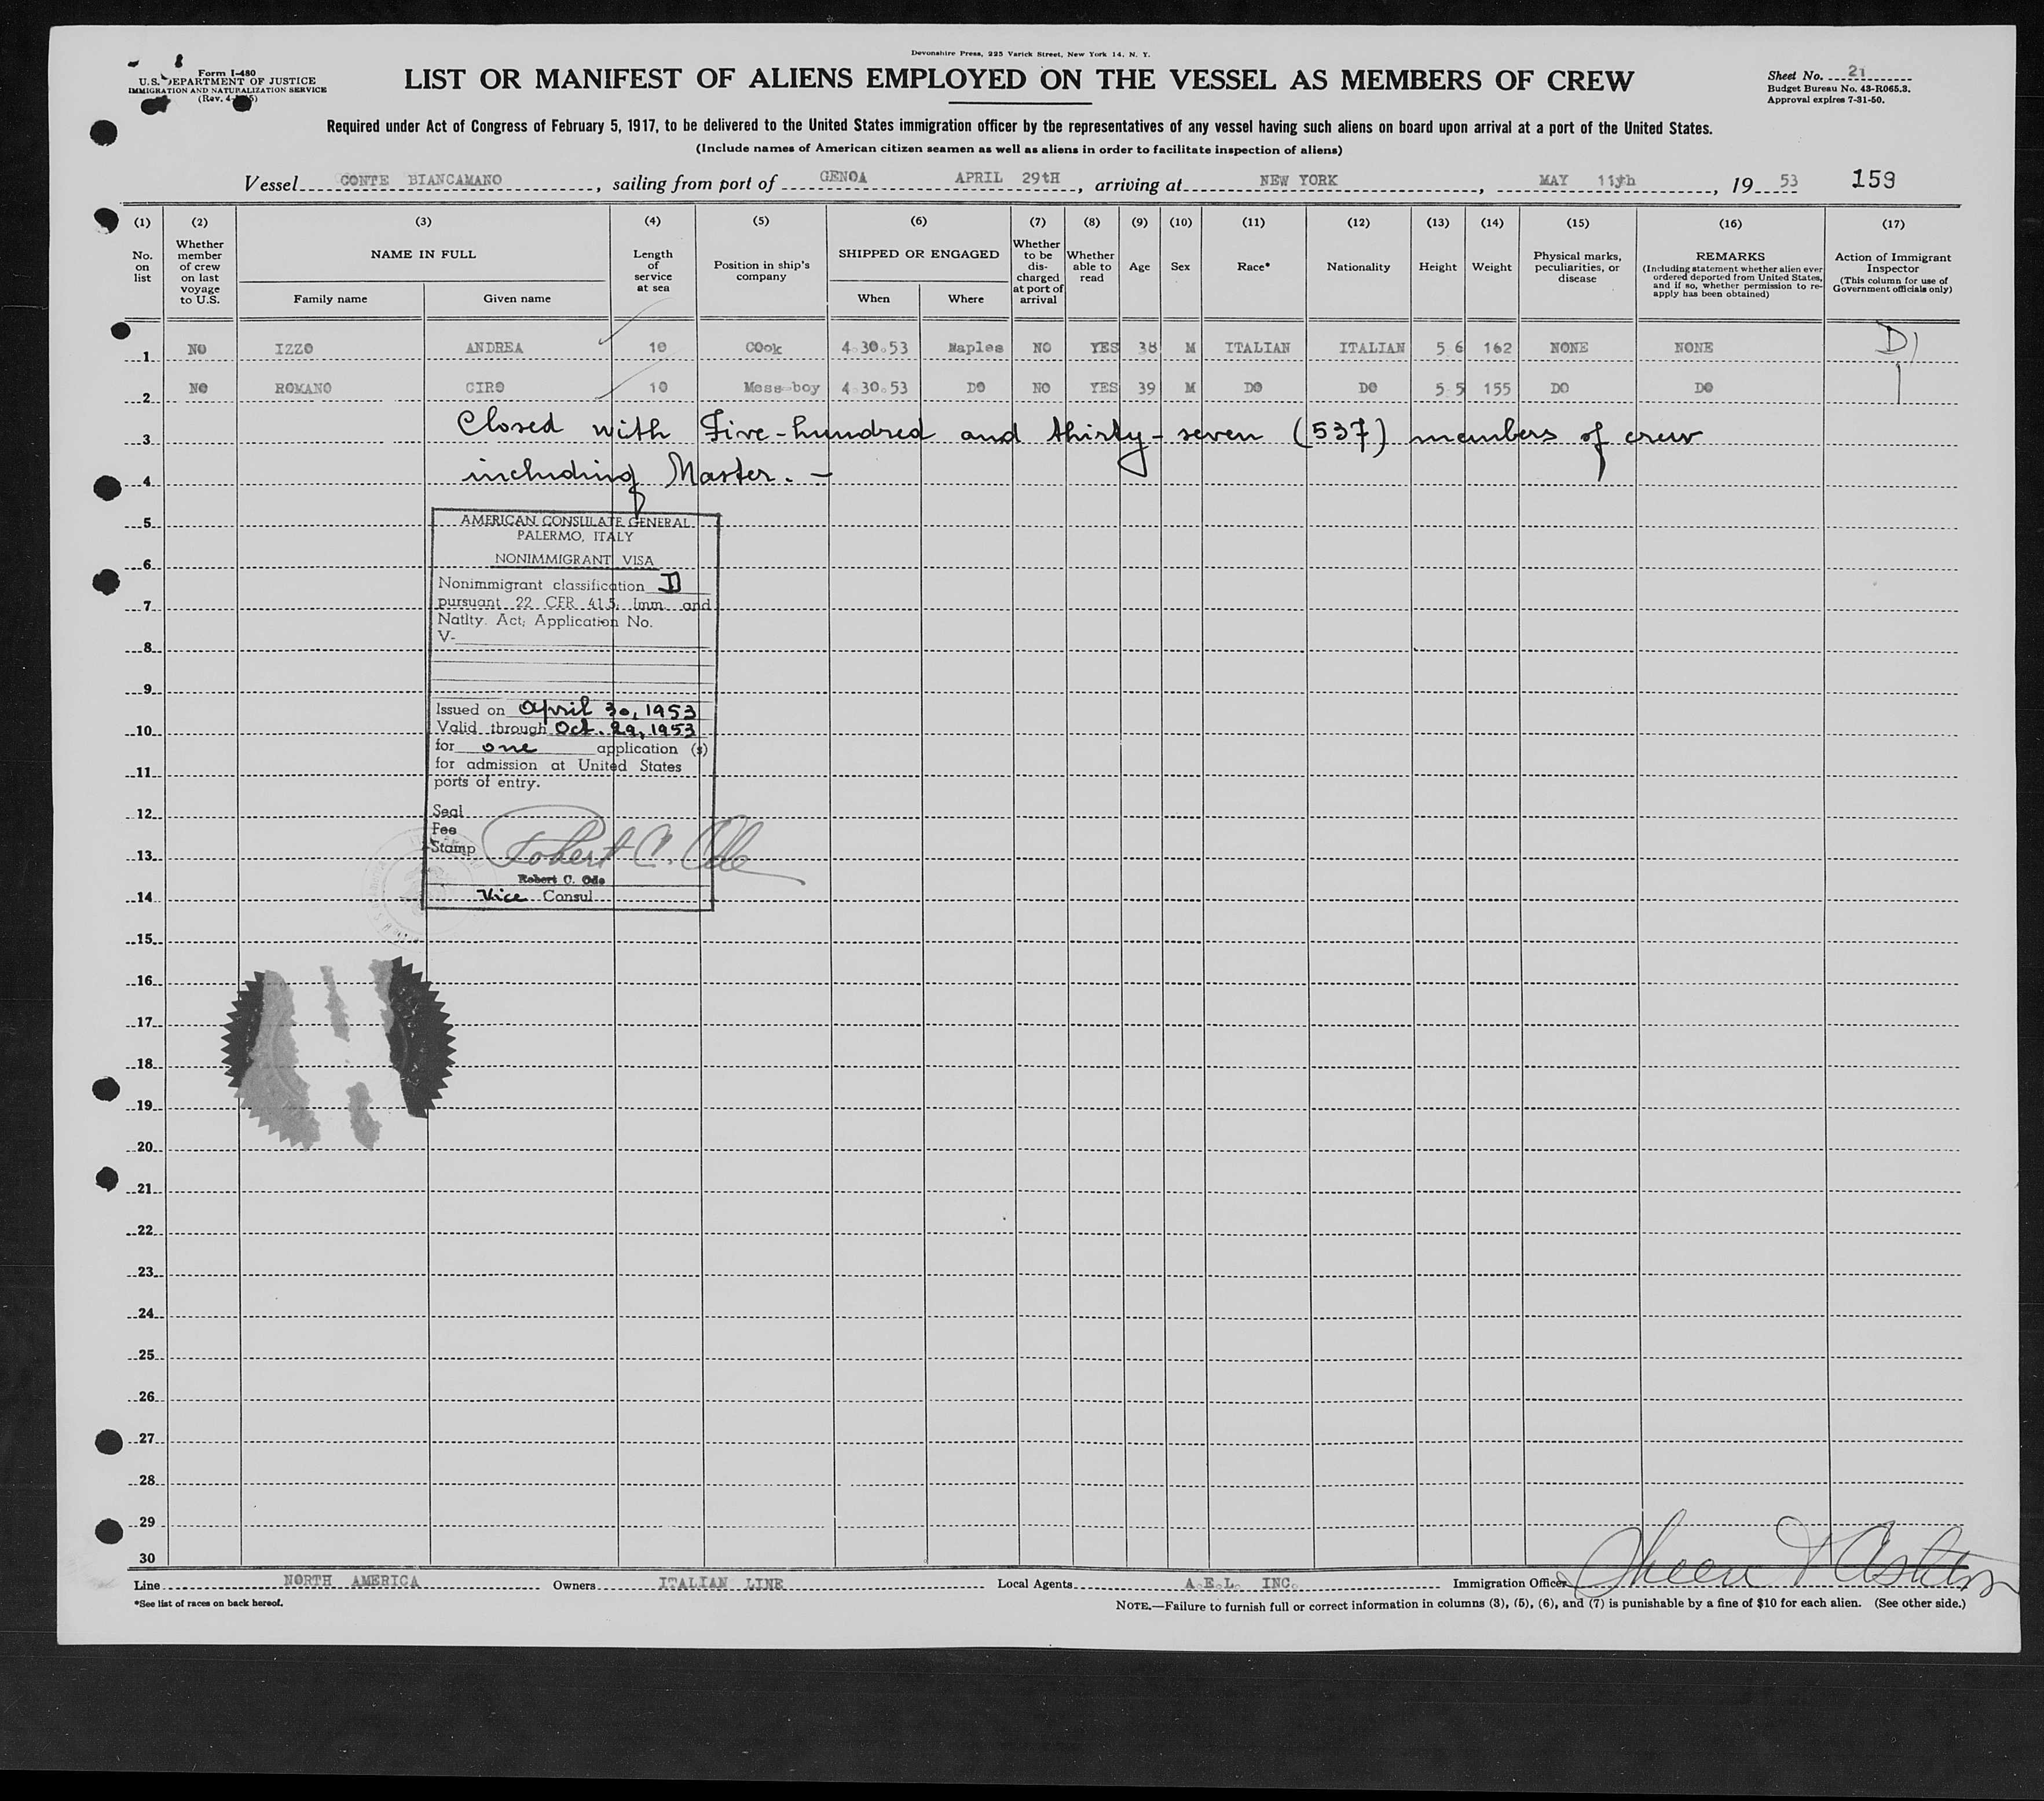 Devonshire Press, 225 Varick Street, New York 14, N. Y.
Form I-480
U.S. DEPARTMENT OF JUSTICE
IMMIGRATION AND NATURALIZATION SERVICE
LIST OR MANIFEST OF ALIENS EMPLOYED ON THE VESSEL AS MEMBERS OF CREW
Sheet No. 21
Budget Bureau No. 43-R065.3.
Approval expires 7-31-50.
Required under Act of Congress of February 5, 1917, to be delivered to the United States immigration officer by the representatives of any vessel having such aliens on board upon arrival at a port of the United States.
(Include names of American citizen seamen as well as aliens in order to facilitate inspection of aliens)
Vessel CONTE BIANCAMANO, sailing from port of GENOA APRIL 29tH, arriving at NEW YORK, MAY 11th, 19 53 159
(1) (2) (3) (4) (5) (6) (7) (8) (9) (10) (11) (12) (13) (14) (15) (16) (17)
No. on list
Whether member of crew on last voyage to U.S.
NAME IN FULL
Family name
Given name
Length of service at sea
Position in ship's company
SHIPPED OR ENGAGED
When
Where
Whether to be discharged at port of arrival
Whether able to read
Age
Sex
Race*
Nationality
Height
Weight
Physical marks, peculiarities, or disease
REMARKS
(Including statement whether alien ever ordered deported from United States, and if so, whether permission to reapply has been obtained)
Action of Immigrant Inspector
(This column for use of Government officials only)
1 NO IZZO ANDREA 10 COok 4.30.53 Naples NO YES 38 M ITALIAN ITALIAN 5 6 162 NONE NONE D1
2 NO ROMANO CIRO 10 Mess-boy 4.30.53 DO NO YES 39 M DO DO 5 5 155 DO DO
3 Closed with Five-hundred and thirty-seven (537) members of crew
4 including Master. -
5
6
7
8
9
10
11
12
13
14
15
16
17
18
19
20
21
22
23
24
25
26
27
28
29
30
AMERICAN CONSULATE GENERAL
PALERMO, ITALY
NONIMMIGRANT VISA
Nonimmigrant classification D
pursuant 22 CFR 41.5; Imm. and
Natlty. Act; Application No.
V-
Issued on April 30, 1953
Valid through Oct. 29, 1953
for one application (s)
for admission at United States
ports of entry.
Seal
Fee
Stamp
Robert C. Ode
Robert C. Ode
Vice Consul
Line NORTH AMERICA Owners ITALIAN LINE Local Agents A.E.L. INC. Immigration Officer
*See list of races on back hereof.
NOTE.—Failure to furnish full or correct information in columns (3), (5), (6), and (7) is punishable by a fine of $10 for each alien. (See other side.)